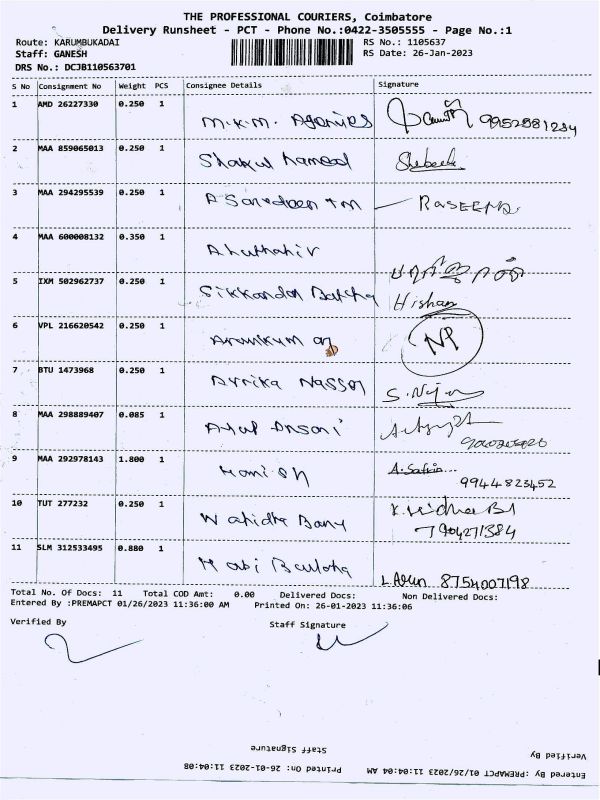 THE PROFESSIONAL COURIERS, Coimbatore
Delivery Runsheet - PCT - Phone No.:0422-3505555 - Page No.:1
Route: KARUMBUKADAI
RS No.: 1105637
Staff: GANESH
RS Date: 26-Jan-2023
DRS No.: DCJB110563701
S No Consignment No Weight PCS Consignee Details Signature
1 AMD 26227330 0.250 1 M.K.M. Agencies 9952881234
2 MAA 859065013 0.250 1 Shakul Hameed
3 MAA 294295539 0.250 1 RASEENA
4 MAA 600008132 0.350 1
5 IXM 502962737 0.250 1 Sikkandar Batcha Hisham
6 VPL 216620542 0.250 1 NP
7 BTU 1473968 0.250 1
8 MAA 298889407 0.085 1 Ansari
9 MAA 292978143 1.800 1 A.Safria 9944823452
10 TUT 277232 0.250 1 Wahidha Banu 7904271384
11 SLM 312533495 0.880 1 8754007198
Total No. Of Docs: 11 Total COD Amt: 0.00 Delivered Docs: Non Delivered Docs:
Entered By :PREMAPCT 01/26/2023 11:36:00 AM Printed On: 26-01-2023 11:36:06
Verified By Staff Signature
Staff Signature
Verified By
Entered By :PREMAPCT 01/26/2023 11:04:04 AM Printed On: 26-01-2023 11:04:08